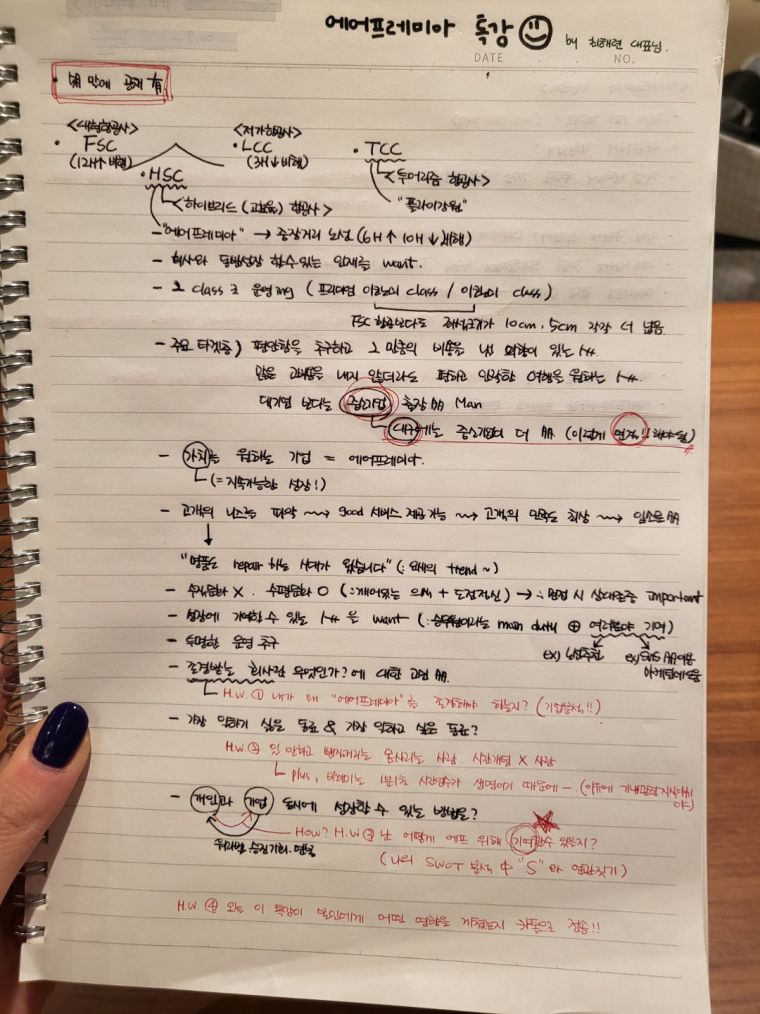 에어프레미아 특강 by 최해련 대표님.
DATE . . NO.
<대형항공사> <저가항공사>
• FSC • LCC • TCC
(12H↑비행) (3H↓비행) <투어리즘 항공사>
• HSC "플라이강원"
<하이브리드 (고효율) 항공사>
- "에어프레미아" → 중장거리 노선 (6H↑ 10H↓ 비행)
- 회사와 동반성장 할수있는 인재를 want.
- 2 class로 운영ing (프리미엄 이코노미 class / 이코노미 class)
FSC 항공보다도 10cm, 5cm 각각 더 넓음
- 주요 타겟층) 편안함을 추구하고 그 만큼의 비용을 낼 의향이 있는
않은 내지 않더라도 편하고 안락한 여행을 원하는
대기업 보다는 중소기업 출장 Man
중소기업이 더 (이렇게 연결!! 해야됨)
- 가치를 원하는 기업 = 에어프레미아.
(= 지속가능한 성장!)
- 고객의 니즈를 파악 ⟿ good 서비스 제공가능 ⟿ 고객의 만족도 향상 ⟿ 입소문
"명품도 repair 하는 시대가 왔습니다" (: 요새의 trend ~)
- 수직문화 X. 수평문화 O (: 깨어있는 의식 + 도전정신) → ∴ 면접 시 상대존중 important
- 성장에 기여할 수 있는 을 want (: 승무원이라는 main duty ⊕ 여러분야 기여)
ex) ex) SNS 마케팅에도움
- 투명한 운영 추구
- 존경받는 회사란 무엇인가? 에 대한 고민
H.W. ① 내가 왜 "에어프레미아"를 존경해야 하는지? (기업분석!!)
- 가장 일하기 싫은 동료 & 가장 일하고 싶은 동료?
H.W. ② 일 안하고 몸사리는 사람. 시간개념 X 사람
plus, 비행기는 1분1초 시간엄수가 생명이기 때문에 -
- 개인과 기업 동시에 성장할 수 있는 방법은?
How? H.W ③ 난 어떻게 에프 위해 기여할수 있는지?
(나의 SWOT 분석 中 "S" 와 연관짓기)
H.W. ④ 오늘 이 특강이 본인에게 어떤 영향을 끼쳤는지 카톡으로 전송!!